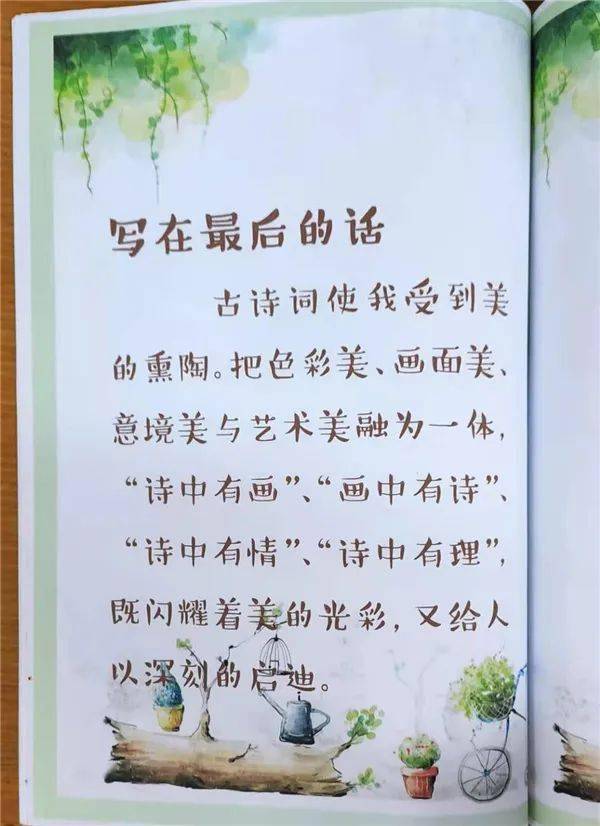 写在最后的话
古诗词使我受到美
的熏陶。把色彩美、画面美、
意境美与艺术美融为一体，
“诗中有画”、“画中有诗”、
“诗中有情”、“诗中有理”，
既闪耀着美的光彩，又给人
以深刻的启迪。